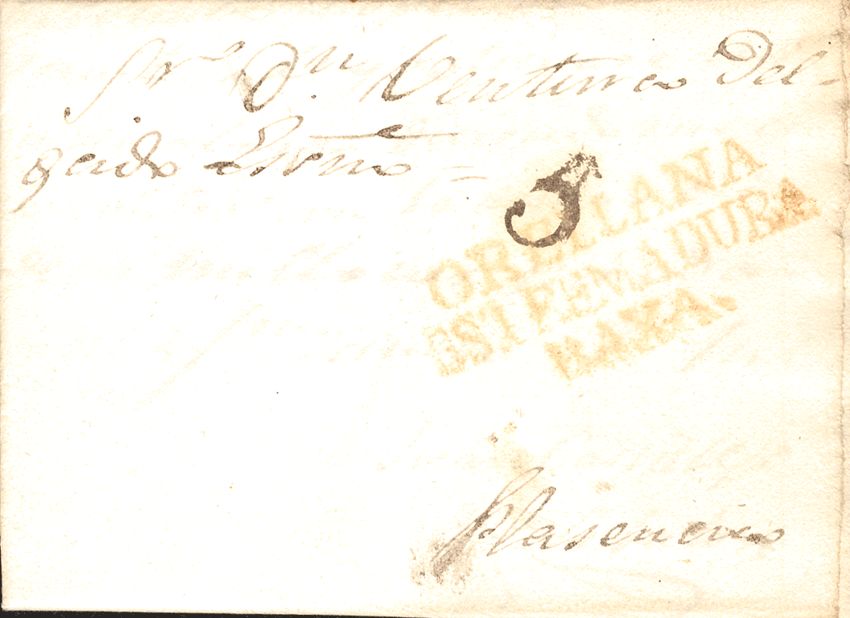 Sr. Dn. Ventura Del-
gado Essno =
5
ORELLANA
ESTREMADURA
BAXA.
Plasencia